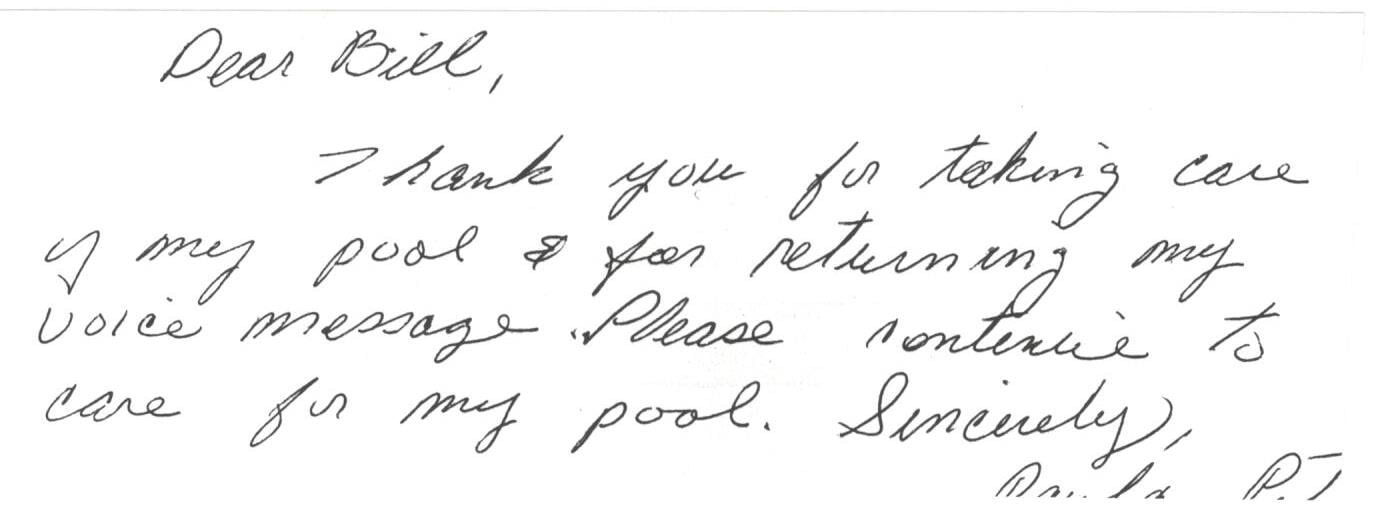 Dear Bill,
Thank you for taking care
of my pool & for returning my
voice message. Please continue to
care for my pool. Sincerely,